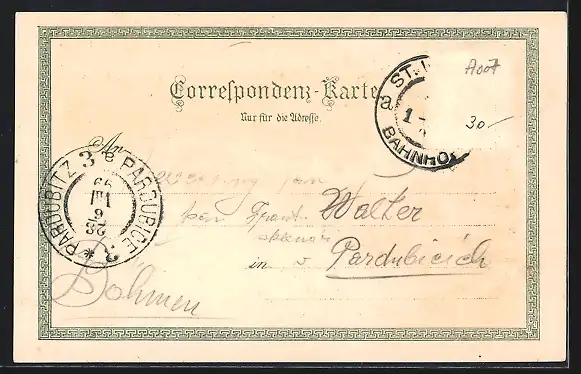 Correspondenz-Karte
Nur für die Adresse.
A007
30.-
a ST.
1-
BAHNHO
PARDUBITZ 3 8 PARDUBICE
28 6 99
An
pan
Frant. Walter
in v Pardubicích
Böhmen